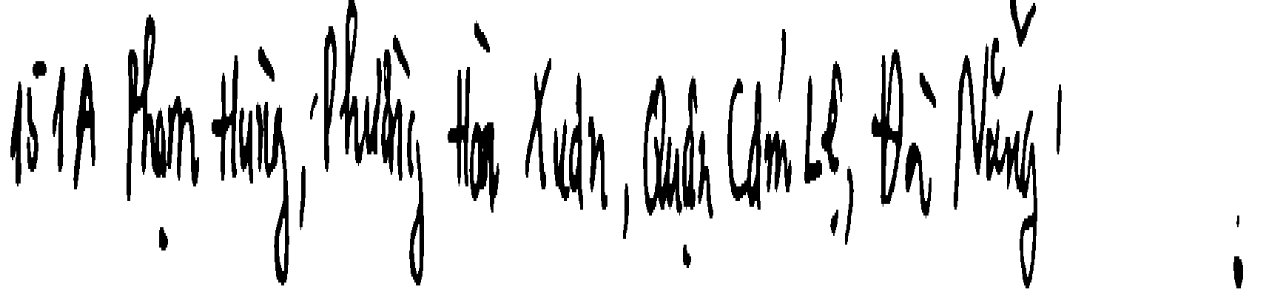 Số 1A Phạm Hùng, Phường Hòa Xuân, Quận Cẩm Lệ, Đà Nẵng